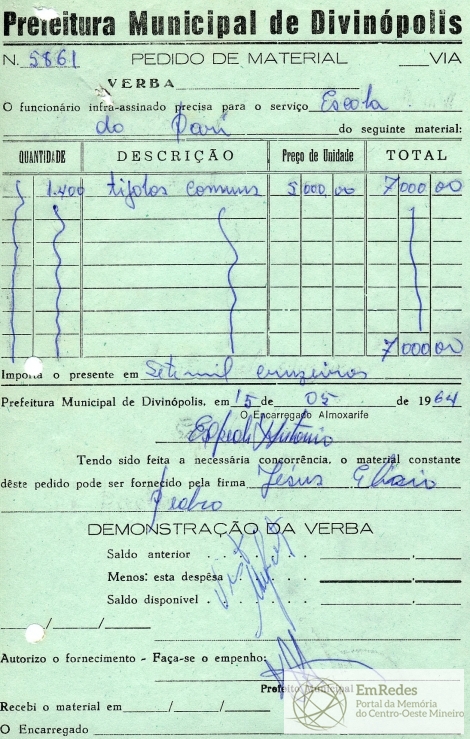 Prefeitura Municipal de Divinópolis
N. 5861 PEDIDO DE MATERIAL VIA
VERBA
O funcionário infra-assinado precisa para o serviço Escola
do Pari do seguinte material:
QUANTIDADE DESCRIÇÃO Preço de Unidade TOTAL
1.400 tijolos comuns 5 000,00 7 000 00
7 000 00
Importa o presente em Sete mil cruzeiros
Prefeitura Municipal de Divinópolis, em 15 de 05 de 1964
O Encarregado Almoxarife
Antonio
Tendo sido feita a necessária concorrência, o material constante
dêste pedido pode ser fornecido pela firma Jésus
Pedro
DEMONSTRAÇÃO DA VERBA
Saldo anterior
Menos: esta despêsa
Saldo disponivel
Autorizo o fornecimento - Faça-se o empenho:
Prefeito Municipal
Recebi o material em
O Encarregado
EmRedes
Portal da Memória
do Centro-Oeste Mineiro